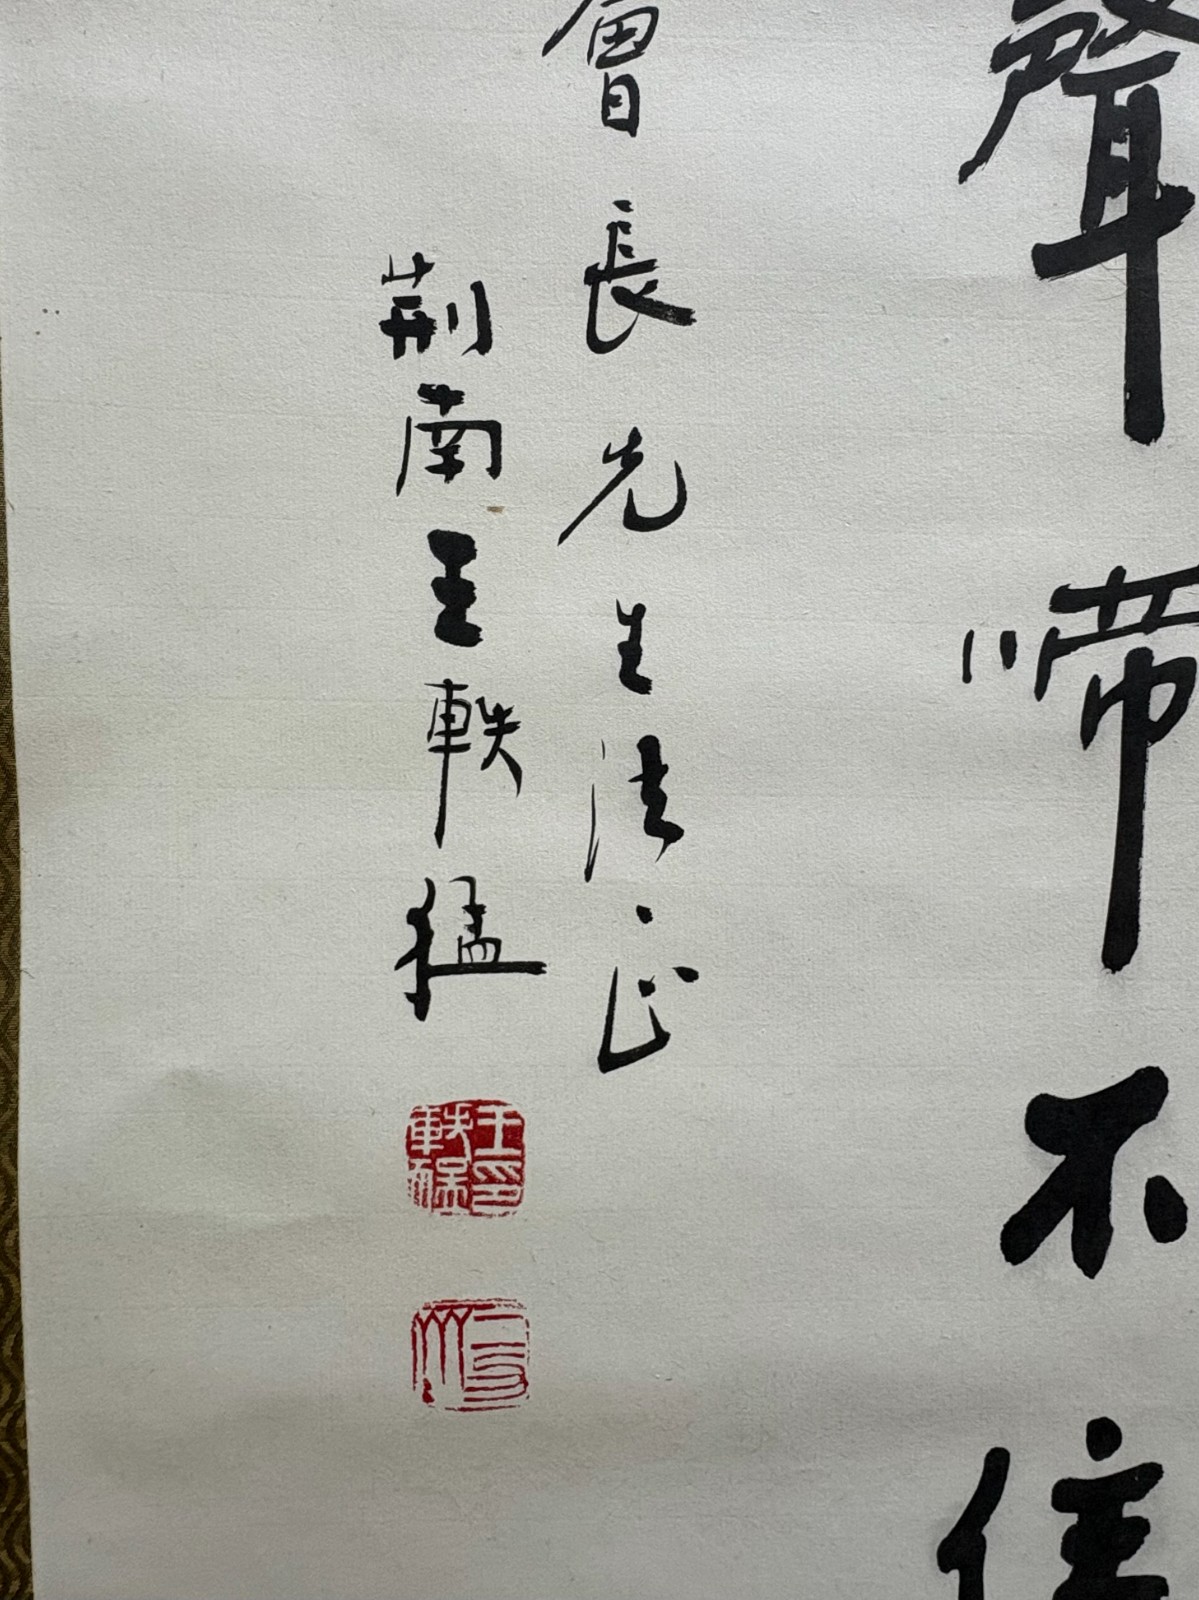 聲啼不住
會長先生法正
荊南王軼猛
王印軼猛